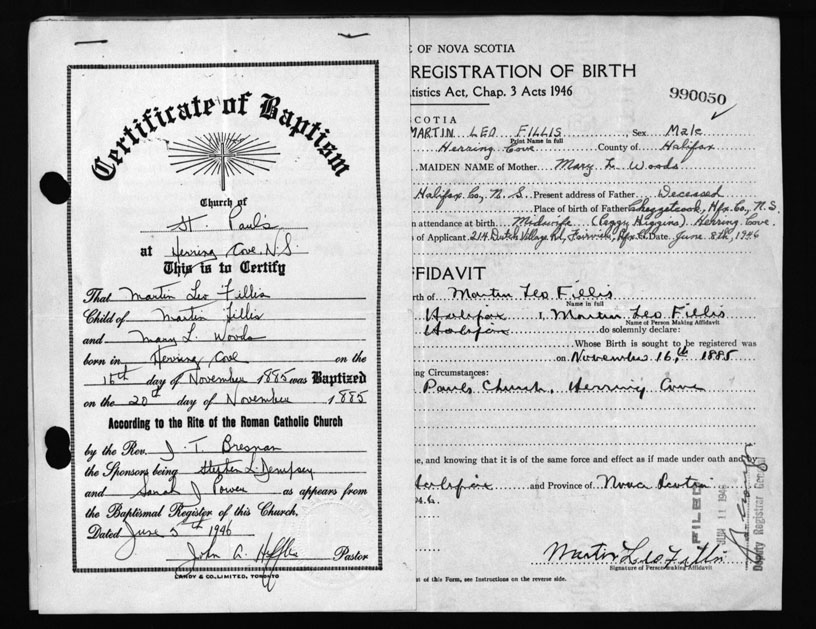 Certificate of Baptism
Church of
St. Pauls
at Herring Cove, N.S.
This is to Certify
That Martin Leo Fillis
Child of Martin Fillis
and Mary L. Woods
born in Herring Cove on the
15th day of November 1885 was Baptized
on the 20th day of November 1885
According to the Rite of the Roman Catholic Church
by the Rev. J. T. Bresnan
the Sponsors being Stephen L. Dempsey
and Sarah J Power as appears from
the Baptismal Register of this Church.
Dated June 5th 1946
John A. Pastor
LANDY & CO. LIMITED, TORONTO
E OF NOVA SCOTIA
REGISTRATION OF BIRTH
atistics Act, Chap. 3 Acts 1946
990050
SCOTIA
MARTIN LEO FILLIS, Sex Male
Print Name in full
Herring Cove County of Halifax
MAIDEN NAME of Mother Mary L. Woods
Halifax Co., N. S. Present address of Father Deceased
Place of birth of Father Chezzetcook, Hfx. Co., N. S.
n attendance at birth Midwife (Peggy Higgins) Herring Cove.
of Applicant 214 Dutch Village Rd, Fairview, Hfx. Co. Date June 8th, 1946
FFIDAVIT
rth of Martin Leo Fillis
Name in full
Halifax I, Martin Leo Fillis
Name of Person Making Affidavit
Halifax do solemnly declare:
Whose Birth is sought to be registered was
on November 16,th 1885
ng Circumstances:
Pauls Church, Herring Cove
e, and knowing that it is of the same force and effect as if made under oath and
Halifax and Province of Nova Scotia
FILED
JUN 11 1946
Deputy Registrar General
Martin Leo Fillis
Signature of Person making Affidavit
t of this Form, see Instructions on the reverse side.